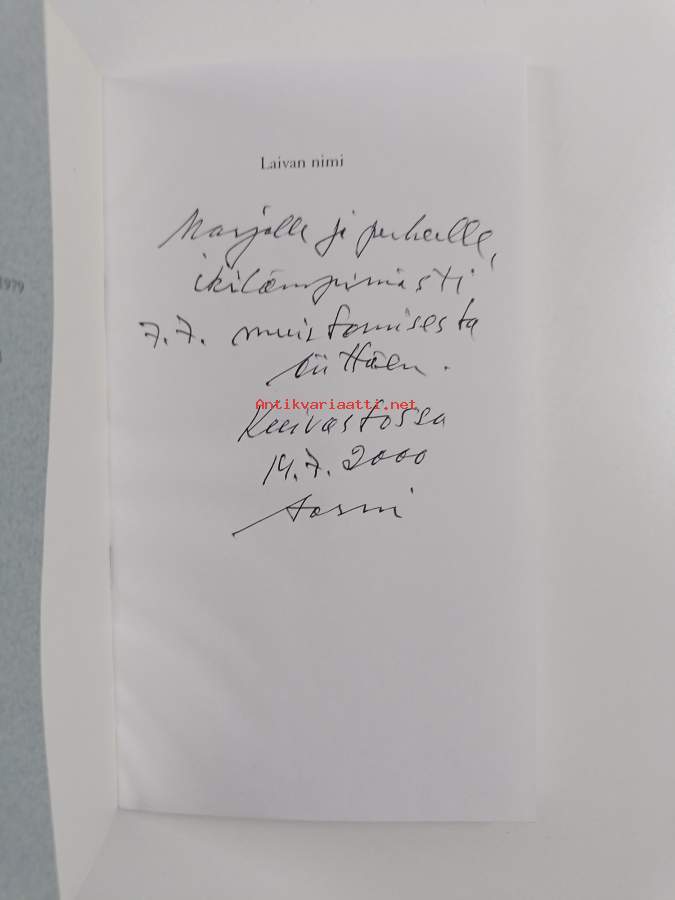 Laivan nimi
Marjalle ja perheelle,
ikilämpimästi
7.7. muistamisesta
kiittäen.
Antikvariaatti.net
Kuivastossa
14.7. 2000
1979